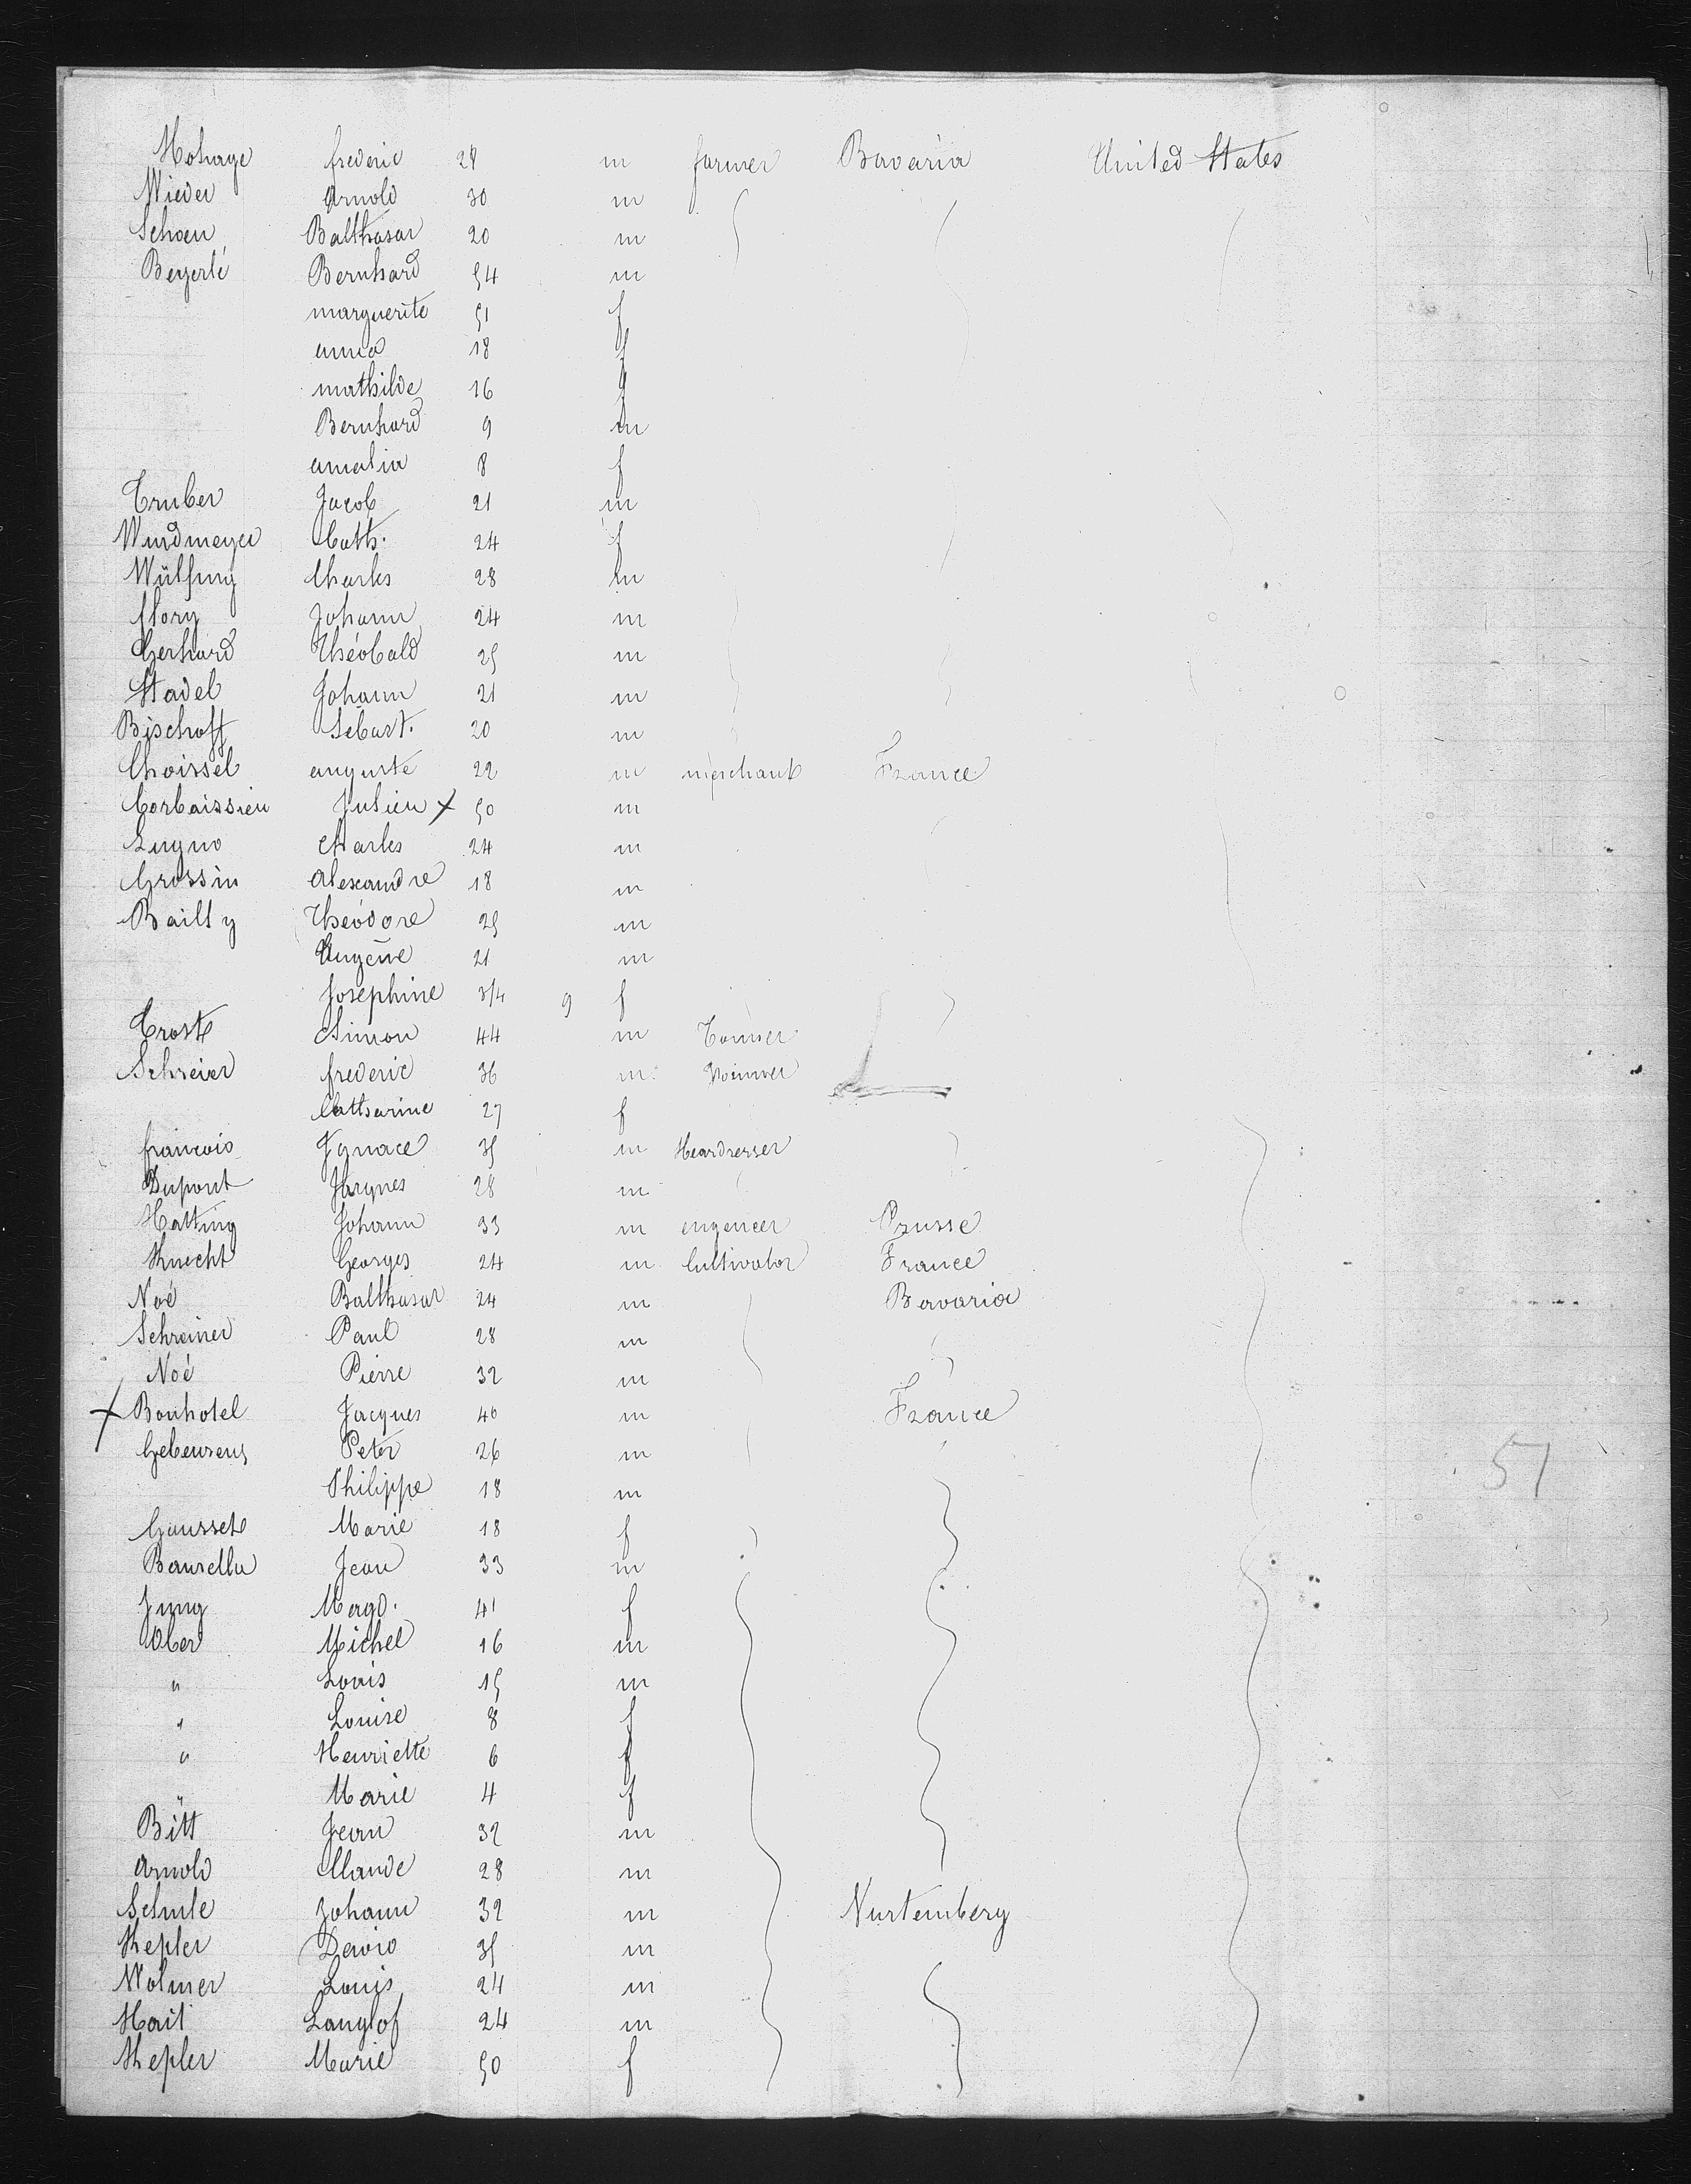 Mohage frederic 28 m farmer Bavaria United States
Wieder Arnold 30 m
Schoen Balthasar 20 m
Beyerlé Bernhard 54 m
marguerite 51 f
anna 18 f
mathilde 16 f
Bernhard 9 m
amalia 8 f
Truber Jacob 21 m
Windmeyer Cath. 24 f
Wülfing Charles 28 m
flory Johann 24 m
Gerhard Théobald 25 m
Stadel Johann 21 m
Bischoff Sebast. 20 m
Choissel auguste 22 m merchant France
Corbaissieu Julien x 50 m
Lugno Charles 24 m
Grossin Alexandre 18 m
Bailly Théodore 25 m
Eugène 21 m
Josephine 3/4 9 f
Trost Simon 44 m Tanner
Schreier frederic 36 m
Catharine 27 f
francois Ignace 35 m Heardresser
Dupont Jacques 28 m
Hatting Johann 33 m engeneer Prusse
Knecht Georges 24 m Cultivator France
Noé Balthasar 24 m Bavaria
Schreiner Paul 28 m
Noé Pierre 32 m
x Bonhotel Jacques 40 m France
Peter 26 m
Philippe 18 m
51
Gousset Marie 18 f
Jean 33 m
Jung Magd. 41 f
Ober Michel 16 m
" Louis 15 m
" Louise 8 f
" Henriette 6 f
" Marie 4 f
Bitt Jean 32 m
Arnold Claude 28 m
Schule Johann 32 m Wurtemberg
Kepler David 35 m
Wolmer Louis 24 m
Hait Langlof 24 m
Kepler Marie 50 f